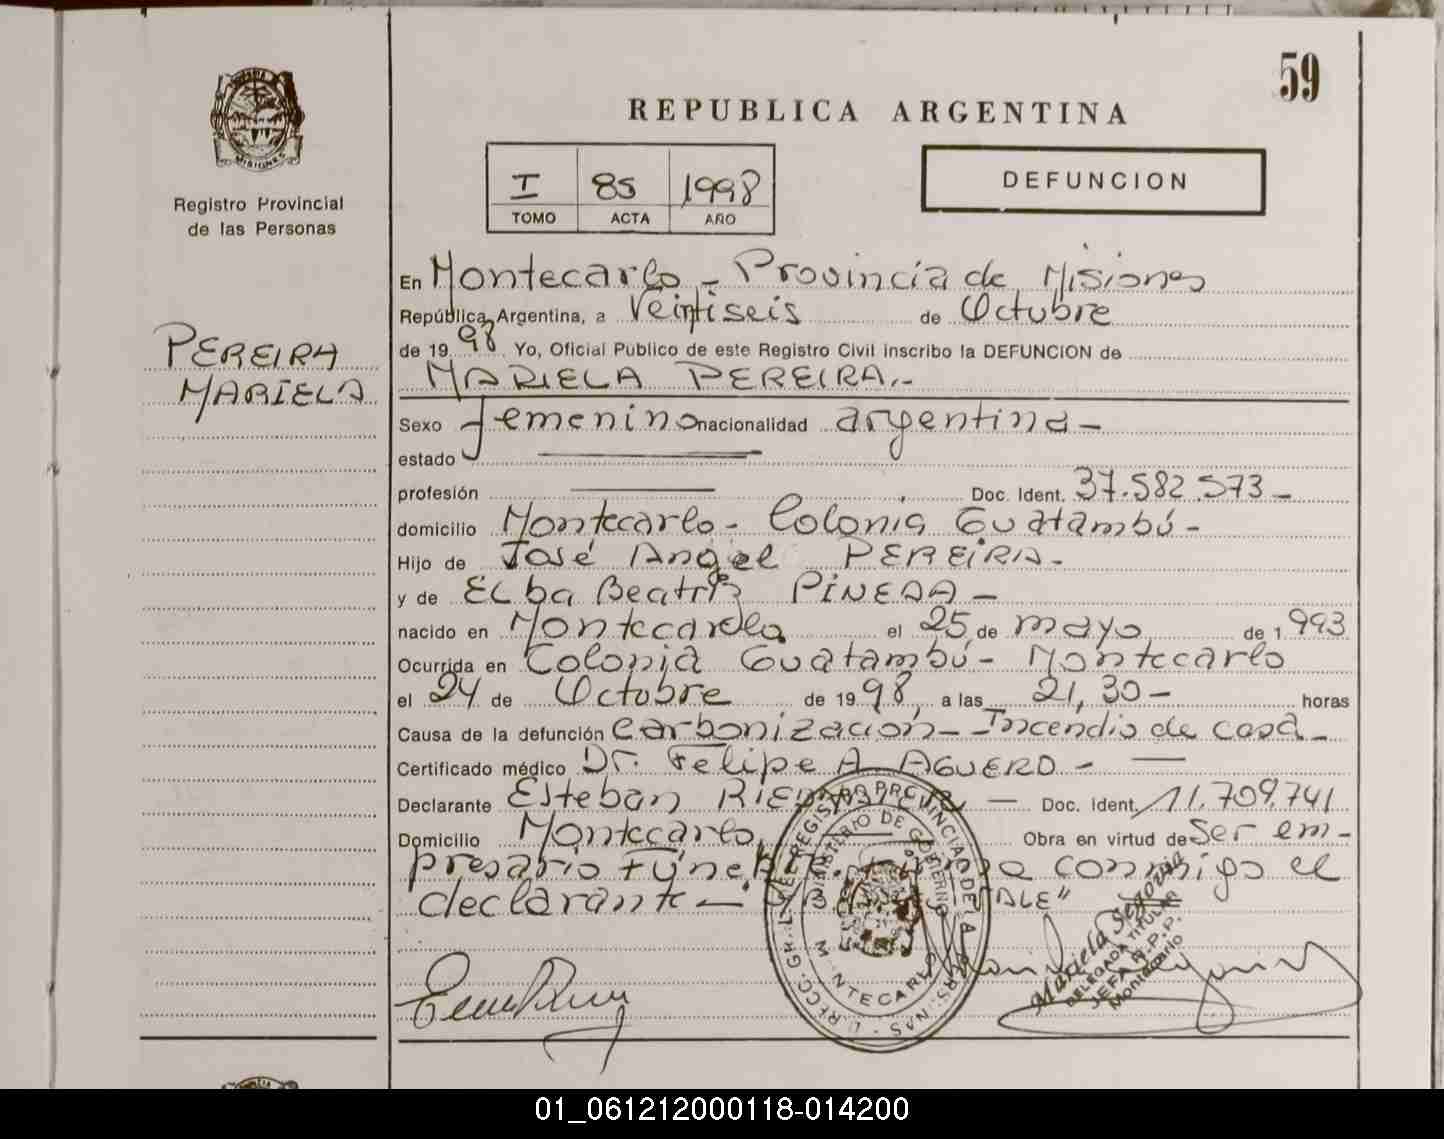 59
REPUBLICA ARGENTINA
MISIONES
Registro Provincial
de las Personas
I 85 1998
TOMO ACTA AÑO
DEFUNCION
PEREIRA
MARIELA
En Montecarlo - Provincia de Misiones
República Argentina, a Veintiseis de Octubre
de 19 98 Yo, Oficial Público de este Registro Civil inscribo la DEFUNCION de
MARIELA PEREIRA.-
Sexo femenino nacionalidad argentina -
estado
profesión Doc. Ident. 37.582.573 -
domicilio Montecarlo - Colonia Guatambú -
Hijo de José Angel PEREIRA -
y de ELba Beatriz PINEDA -
nacido en Montecarlo el 25 de mayo de 1.993
Ocurrida en Colonia Guatambú - Montecarlo
el 24 de Octubre de 19 98, a las 21,30 - horas
Causa de la defunción carbonización - Incendio de casa -
Certificado médico Dr. Felipe A. AGUERO -
Declarante Esteban Doc. Ident. 11.709.741
Domicilio Montecarlo, Obra en virtud de ser em-
presario conmigo el
declarante - "VALE"
MINISTERIO DE GOBIERNO
MONTECARLO
Mariela Segovia
DELEGADA TITULAR
JEFA R.P.P.
Montecarlo
01_061212000118-014200